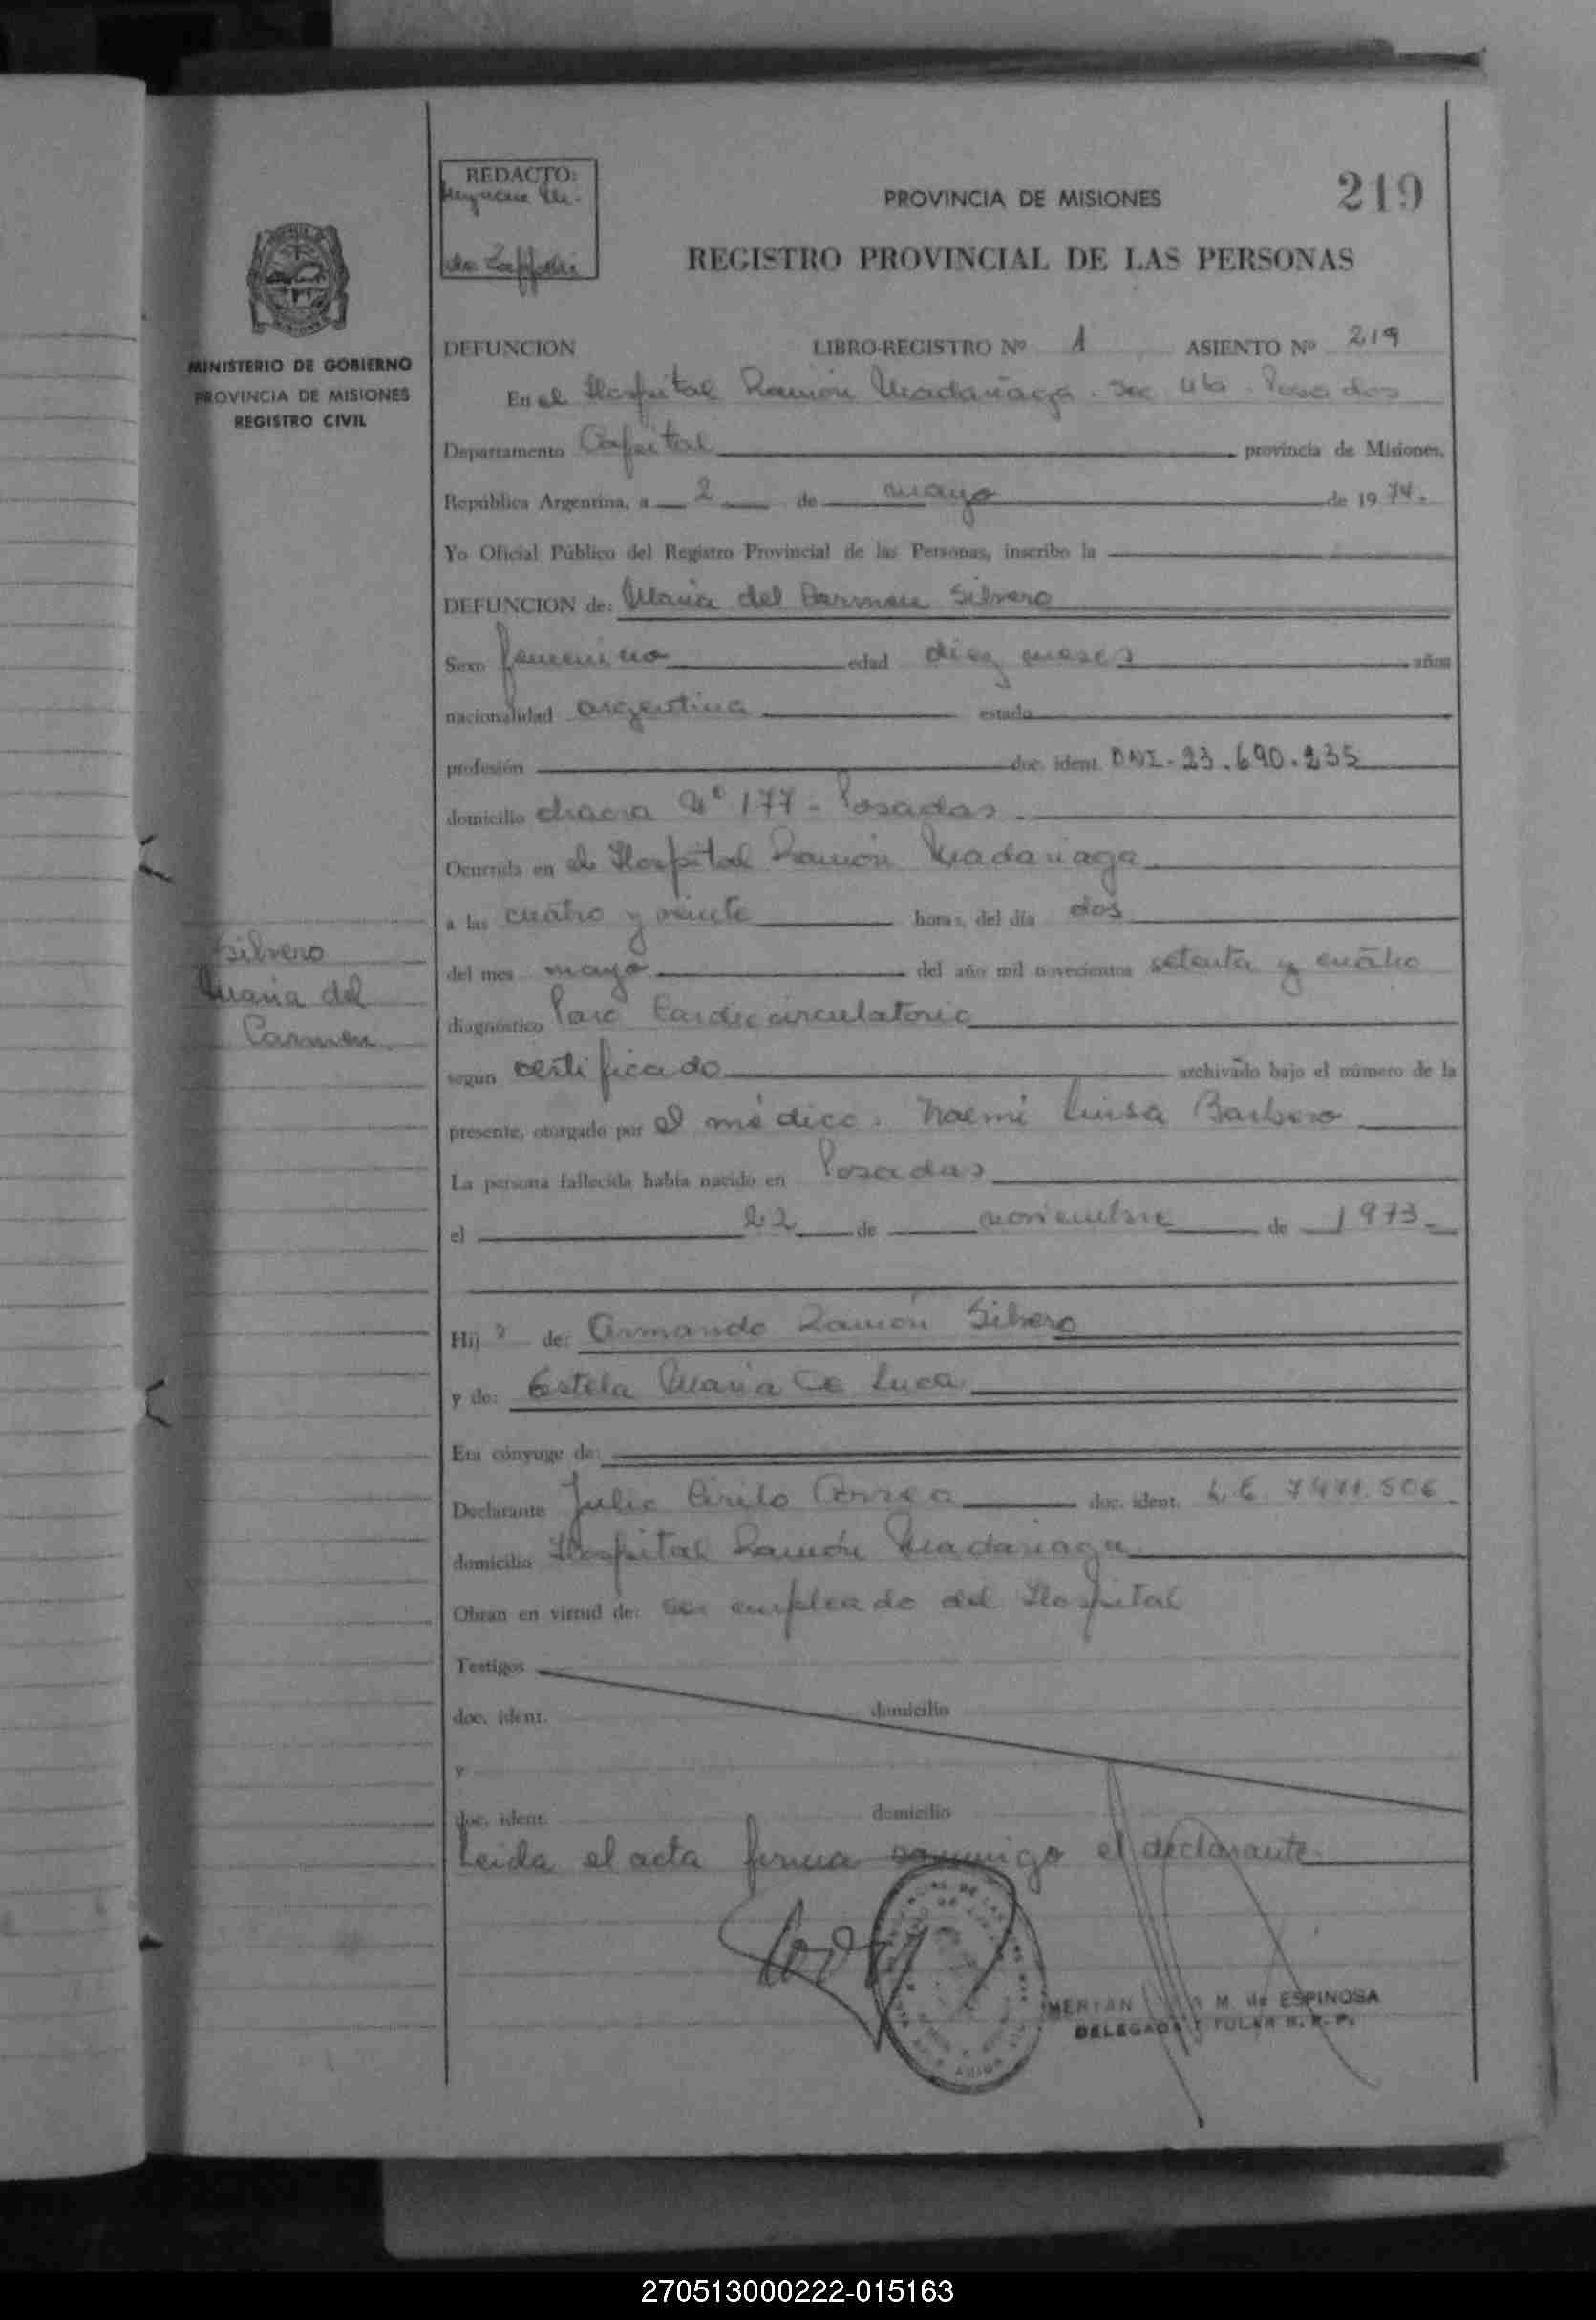 REDACTO:
de Zaffalli
PROVINCIA DE MISIONES
219
REGISTRO PROVINCIAL DE LAS PERSONAS
MINISTERIO DE GOBIERNO
PROVINCIA DE MISIONES
REGISTRO CIVIL
DEFUNCION LIBRO-REGISTRO Nº 1 ASIENTO Nº 219
En el Hospital Ramón Madariaga. Sec. 4ta. Posadas
Departamento Capital provincia de Misiones,
República Argentina, a 2 de mayo de 1974.
Yo Oficial Público del Registro Provincial de las Personas, inscribo la
DEFUNCION de: Maria del Carmen Silvero
Sexo femenino edad diez meses años
nacionalidad argentina estado
profesión doc. ident. DNI-23.690.235
domicilio chacra Nº 177 - Posadas.
Ocurrida en el Hospital Ramón Madariaga.
a las cuatro y veinte horas, del día dos
del mes mayo del año mil novecientos setenta y cuatro
Silvero
Maria del
Carmen
diagnóstico Paro Cardiocirculatorio
según certificado archivado bajo el número de la
presente, otorgado por el médico: Noemi Luisa Barbero
La persona fallecida había nacido en Posadas
el 22 de noviembre de 1973.
Hij a de: Armando Ramón Silvero
y de: Estela Maria De Luca
Era cónyuge de:
Declarante Julio Cirilo Correa doc. ident. L.E. 7.471.506
domicilio Hospital Ramón Madariaga
Obran en virtud de: ser empleado del Hospital
Testigos
doc. ident. domicilio
y
doc. ident. domicilio
Leida el acta firma conmigo el declarante
M. de ESPINOSA
DELEGADA TITULAR R. P. P.
270513000222-015163